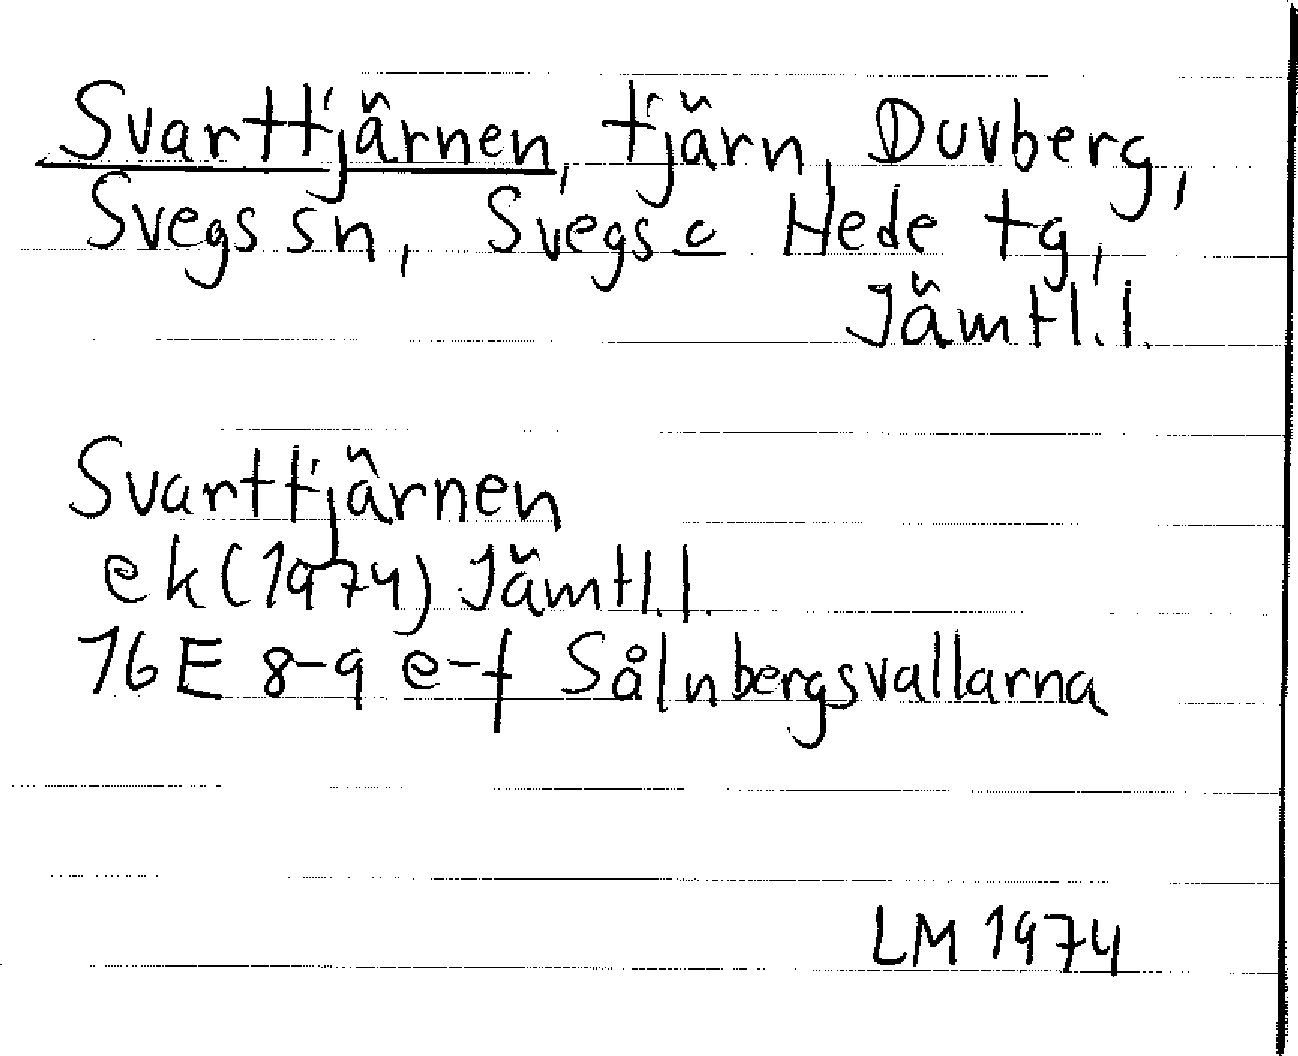 Svarttjärnen, tjärn, Duvberg,
Svegs sn, Svegs o Hede tg,
Jämtl. l.
Svarttjärnen
ek (1974) Jämtl. l.
16 E 8-9 e-f Sålnbergsvallarna
LM 1974